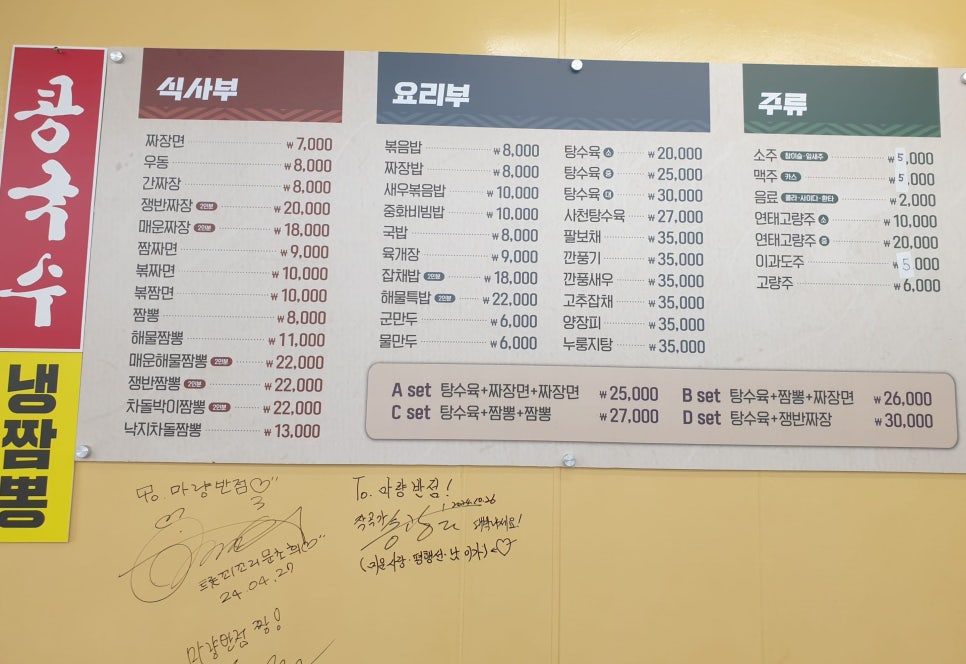 콩국수
냉짬뽕
식사부
짜장면 ₩7,000
우동 ₩8,000
간짜장 ₩8,000
쟁반짜장 2인분 ₩20,000
매운짜장 2인분 ₩18,000
짬짜면 ₩9,000
볶짜면 ₩10,000
볶짬면 ₩10,000
짬뽕 ₩8,000
해물짬뽕 ₩11,000
매운해물짬뽕 2인분 ₩22,000
쟁반짬뽕 2인분 ₩22,000
차돌박이짬뽕 2인분 ₩22,000
낙지차돌짬뽕 ₩13,000
요리부
볶음밥 ₩8,000
짜장밥 ₩8,000
새우볶음밥 ₩10,000
중화비빔밥 ₩10,000
국밥 ₩8,000
육개장 ₩9,000
잡채밥 2인분 ₩18,000
해물특밥 2인분 ₩22,000
군만두 ₩6,000
물만두 ₩6,000
탕수육 소 ₩20,000
탕수육 중 ₩25,000
탕수육 대 ₩30,000
사천탕수육 ₩27,000
팔보채 ₩35,000
깐풍기 ₩35,000
깐풍새우 ₩35,000
고추잡채 ₩35,000
양장피 ₩35,000
누룽지탕 ₩35,000
주류
소주 참이슬·잎새주 ₩5,000
맥주 카스 ₩5,000
음료 콜라·사이다·환타 ₩2,000
연태고량주 소 ₩10,000
연태고량주 중 ₩20,000
이과도주 ₩5,000
고량주 ₩6,000
A set 탕수육+짜장면+짜장면 ₩25,000
B set 탕수육+짬뽕+짜장면 ₩26,000
C set 탕수육+짬뽕+짬뽕 ₩27,000
D set 탕수육+쟁반짜장 ₩30,000
To. 마량반점♡
24.04.27
To. 마량반점!
2024.10.26
작곡가
대박나세요!
마량반점 짱!